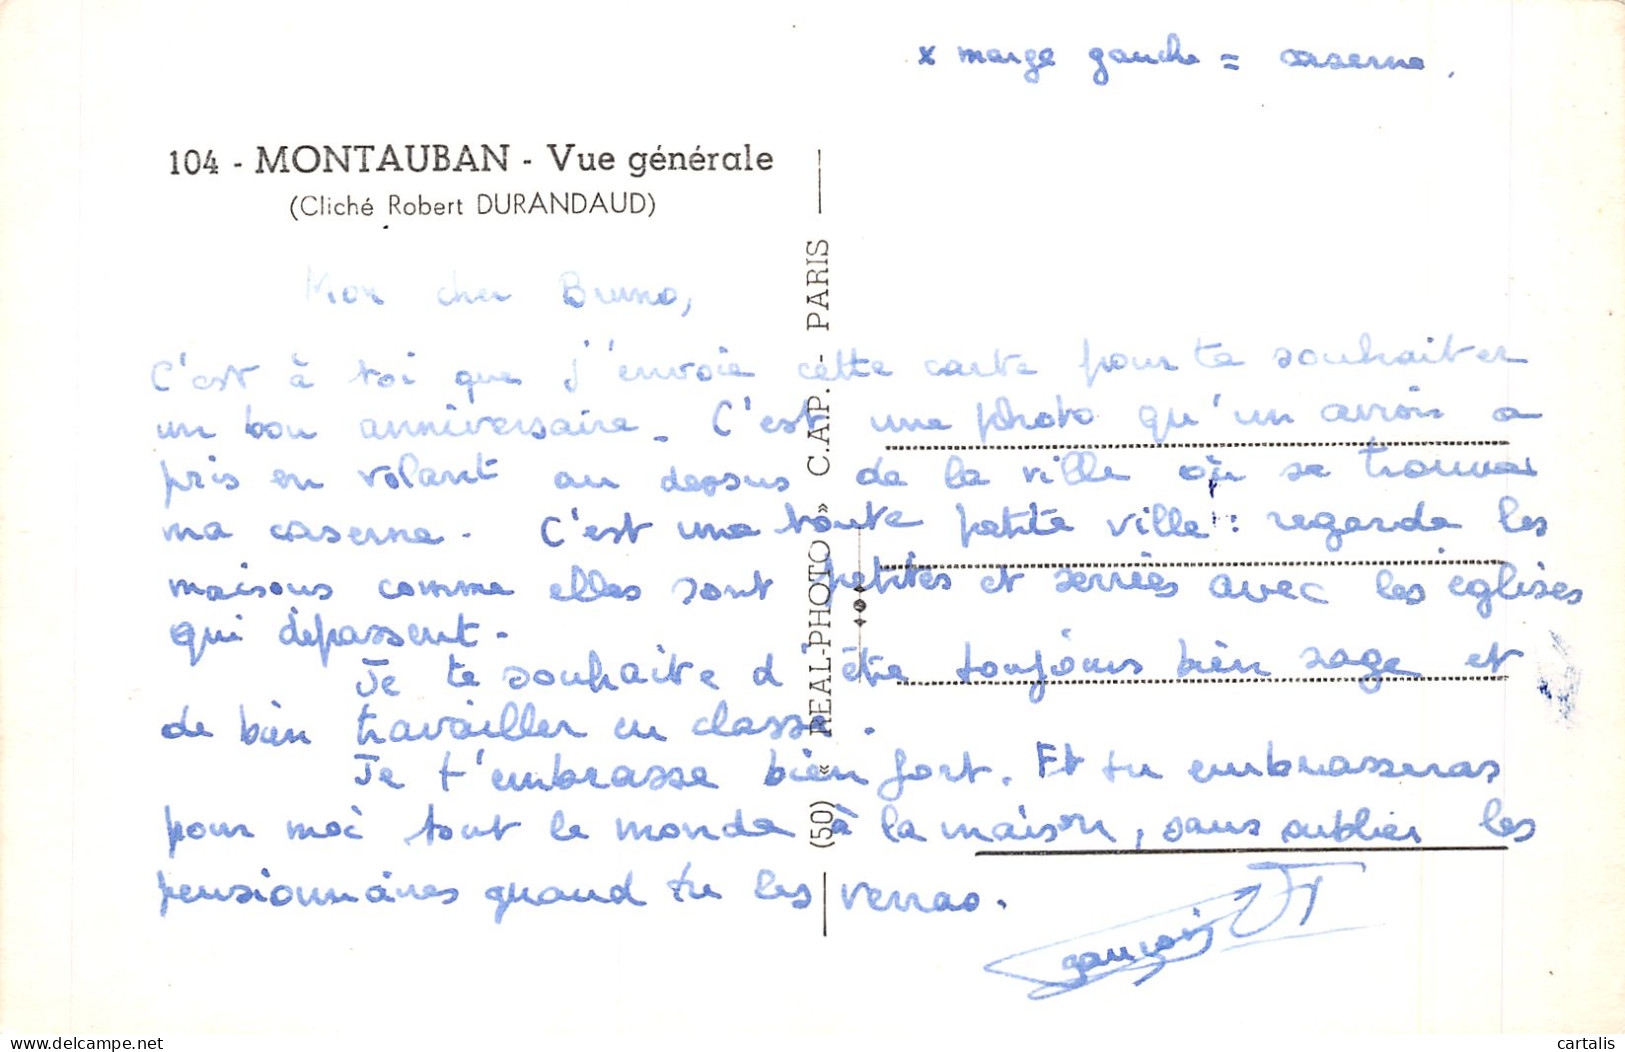 x marge gauche = caserne.
104 - MONTAUBAN - Vue générale
(Cliché Robert DURANDAUD)
Mon cher Bruno,
C'est à toi que j'envoie cette carte pour te souhaiter
un bon anniversaire. C'est une photo qu'un avion a
pris en volant au dessus de la ville où se trouve
ma caserne. C'est une toute petite ville : regarde les
maisons comme elles sont petites et serrées avec les églises
qui dépassent.
Je te souhaite d'être toujours bien sage et
de bien travailler en classe.
Je t'embrasse bien fort. Et tu embrasseras
pour moi tout le monde à la maison, sans oublier les
pensionnaires quand tu les verras.
(50) « REAL-PHOTO » C.A.P. - PARIS
delcampe.net
cartalis